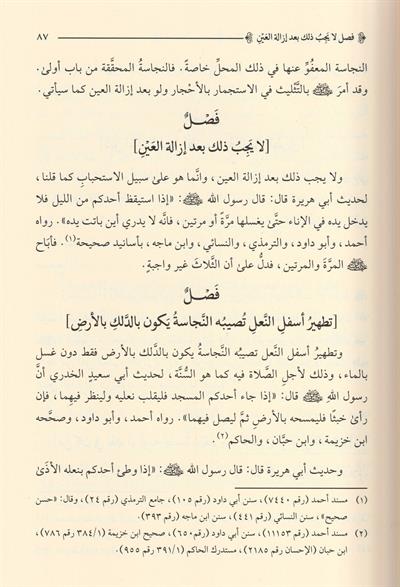 فصل لا يجبُ ذلك بعد إزالة العَيْنِ
٨٧
النجاسة المعفُوِّ عنها في ذلك المحلِّ خاصةً. فالنجاسةُ المحقَّقة من باب أولىٰ.
وقد أمرَ ﷺ بالتَّثليث في الاستجمار بالأحْجار ولو بعد إزالة العين كما سيأتي.
فَصْلٌ
[لا يَجِبُ ذلك بعد إزالة العَيْنِ]
ولا يجب ذلك بعد إزالة العين، وانَّما هو علىٰ سبيل الاستحباب كما قلنا،
لحديث أبي هريرة قال: قال رسول الله ﷺ: «إذا استيقظ أحدكم من الليل فلا
يدخل يده في الإناء حتَّىٰ يغسلها مرَّةً أو مرتين، فانَّه لا يدري أين باتت يده». رواه
أحمد، وأبو داود، والترمذي، والنسائي، وابن ماجه، بأسانيد صحيحة(١). فأبَاح
ﷺ المرَّةَ والمرتين، فدلُّ علىٰ أن الثَّلاث غير واجبةٍ.
فَصْلٌ
[تطهيرُ أسفلِ النَّعلِ تُصيبُه النَّجاسةُ يَكون بالدَّلكِ بالأرضِ]
وتطهيرُ أسفل النَّعل تصيبُه النَّجاسةُ يكون بالدَّلك بالأرض فقط دون غسل
بالماء، وذلك لأجلِ الصَّلاة فيه كما هو السُّنَّة، لحديث أبي سعيدٍ الخدري أنَّ
رسول اللهِ ﷺ قال: «إذا جاء أحدكم المسجد فليقلب نعليه ولينظر فيهما، فإن
رأىٰ خبثًا فليمسحه بالأرضِ ثمَّ ليصل فيهما». رواه أحمد، وأبو داود، وصحَّحه
ابن خزيمة، وابن حبَّان، والحاكم(٢).
وحديث أبي هريرة قال: قال رسول الله ﷺ: «إذا وطئ أحدكم بنعله الأذَىٰ
(١) مسند أحمد (رقم ٧٤٤٠)، سنن أبي داود (رقم ١٠٥)، جامع الترمذي (رقم ٢٤)، وقال: «حسن
صحيح»، سنن النسائي (رقم ٤٤١)، سنن ابن ماجه (رقم ٣٩٣).
(٢) مسند أحمد (رقم ١١١٥٣)، سنن أبي داود (رقم٦٥٠)، صحيح ابن خزيمة (٣٨٤/١ رقم ٧٨٦)،
ابن حبان (الإحسان رقم ٢١٨٥)، مستدرك الحاكم (٣٩١/١ رقم ٩٥٥).